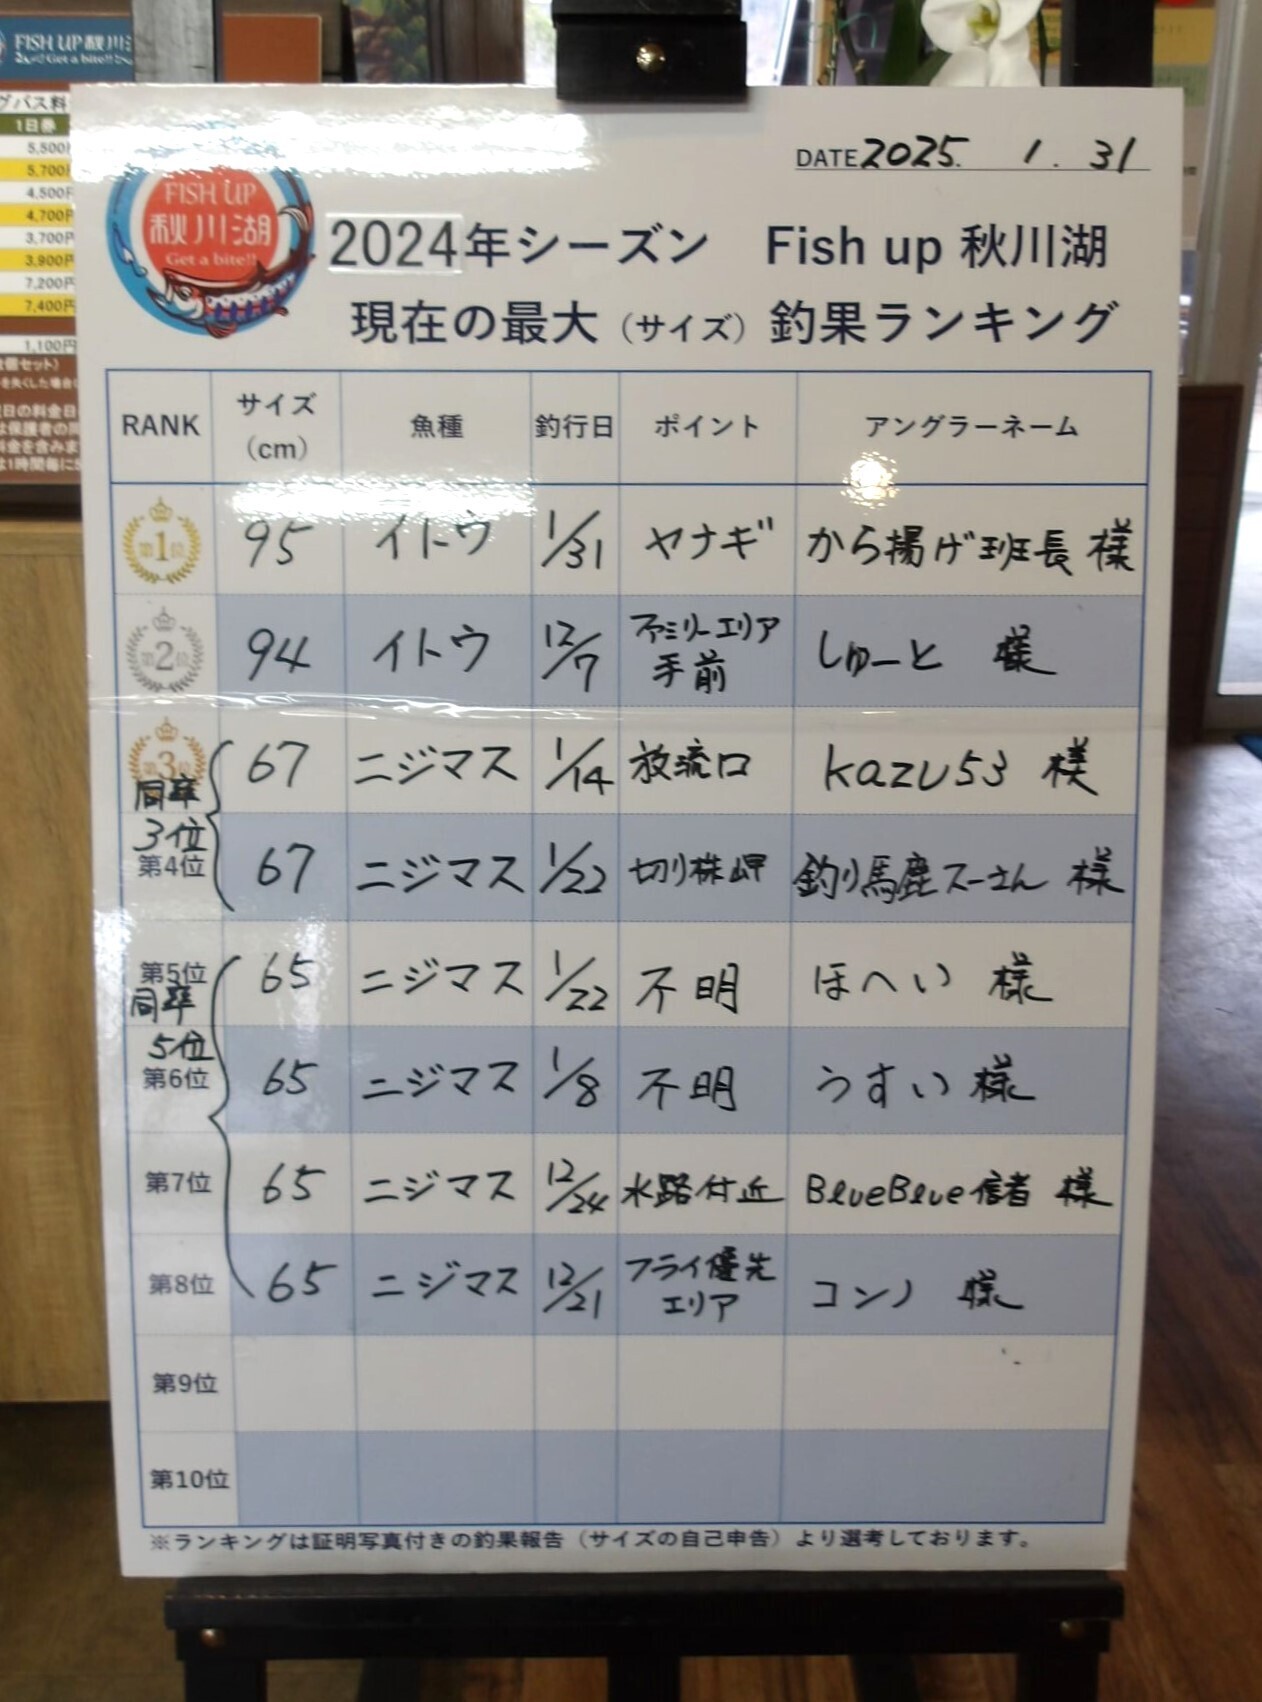 FISH UP 秋川
Get a bite!!
グパス料
1日券
5,500円
5,700円
4,500円
4,700円
3,700円
3,900円
7,200円
7,400円
1,100円
DATE 2025. 1. 31
FISH UP
秋川湖
Get a bite!!
2024年シーズン Fish up 秋川湖
現在の最大（サイズ）釣果ランキング
RANK サイズ(cm) 魚種 釣行日 ポイント アングラーネーム
第1位 95 イトウ 1/31 ヤナギ から揚げ班長 様
第2位 94 イトウ 12/7 ファミリーエリア手前 しゅーと 様
第3位 67 ニジマス 1/14 放流口 kazu53 様
同率
3位
第4位 67 ニジマス 1/22 切り株岬 釣り馬鹿スーさん 様
第5位 65 ニジマス 1/22 不明 ほへい 様
同率
5位
第6位 65 ニジマス 1/8 不明 うすい 様
第7位 65 ニジマス 12/24 水路付近 BlueBlue信者 様
第8位 65 ニジマス 12/21 フライ優先エリア コンノ 様
第9位
第10位
※ランキングは証明写真付きの釣果報告（サイズの自己申告）より選考しております。